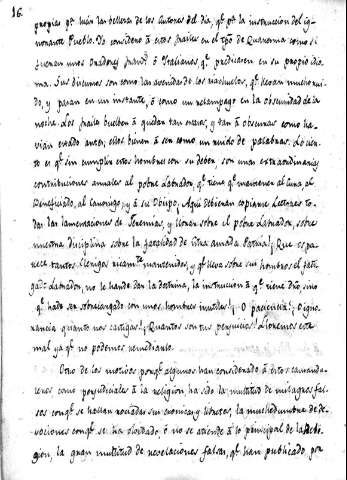 16.
propias pª. lucir las bellezas de los Autores del dia, qᵉ. pª. la instruccion del ig-
norante Pueblo. Yo considero à estos frailes en el tpõ de Quaresma como si
fuesen unos Oradores franc.ˢ ò Italianos qᵉ. predicasen en su propio idio-
ma. Sus discursos son como las avenidas de los riachuelos, qᵉ. llevan mucho rui-
do, y pasan en un instante, ò como un relampago en la obscuridad de la
noche. Los frailes vuelven à quedar tan, y tan à obscuras como ha-
vian estado antes; ellos vienen à ser como un ruido de palabras. Lo cier-
to es qᵉ. sin cumplir estos hombres con su deber, son unas extraordinarias
contribuciones anuales al pobre Labrador, qᵉ. tiene qᵉ. mantener al Cura, al
Beneficiado, al Canonigo, y à su Obispo. ¡Aqui debieran copiarse Lectores to-
das las lamentaciones de Jeremias, y llorar sobre el pobre Labrador, sobre
nuestra Disciplina sobre la fatalidad de esta amada Patria! ¡Que es pa-
rece tantos Clerigos ricamᵗᵉ. mantenidos, y qᵉ. lleva sobre sus hombros el fati-
gado Labrador, no le han de dan la doctrina, la instruccion à qᵉ. tiene dro, sino
qᵉ. ha de ser sobrecargado con unos hombres inutiles! ¡O paciencia! ¡O igno-
rancia quanto nos castigas! ¡Quantos son tus perjuicios! Lloremos este
mal ya qᵉ. no podemos remediarlo.
Otro de los motivos porqᵉ. algunos han considerado à estos
como perjudiciales à la religion, ha sido la multitud de milagros fal-
sos conqᵉ. se hallan rociadas sus cronicas y libretes, la muchedumbre de de-
vociones conqᵉ. se ha olvidado, ò no se atiende à lo principal de la Reli-
gion, la gran multitud de revelaciones falsas, qᵉ. han publicado, por